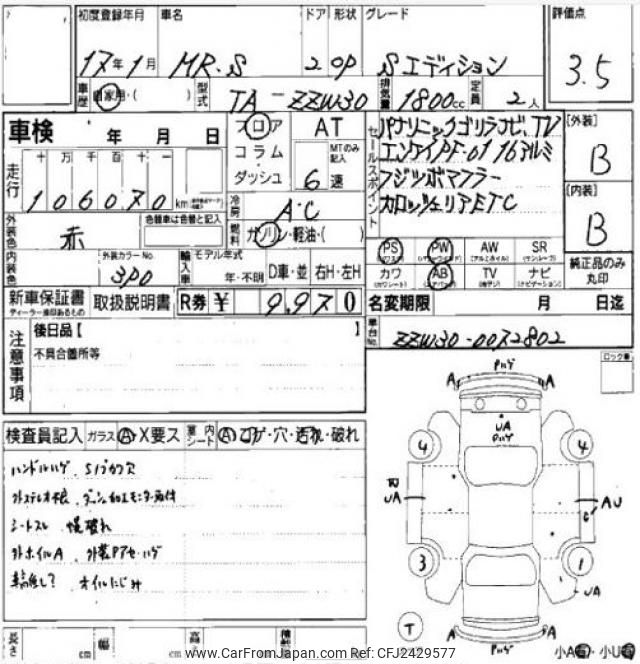 初度登録年月 車名 ドア 形状 グレード 評価点
17年1月 MR-S 2 OP Sエディション 3.5
車歴 自家用・( ) 型式 TA-ZZW30 排気量 1800cc 定員 2人
車検 年 月 日 フロア AT
コラム・ MTのみ記入
ダッシュ 6速
セールスポイント パナソニックゴリラナビ、TV
エンケイPF-01 16アルミ
フジツボマフラー
カロッツェリアETC
[外装]
B
[内装]
B
走行 十万千百十一
106070km
冷房 A・C
外装色 赤 色替車は色替と記入
燃料 ガソリン・軽油・( )
内装色 外装カラーNo. 3P0
輸入車 モデル年式 年・不明 D車・並 右H・左H
PS PW AW SR
(パワステ) (パワーウィンド) (アルミホイル) (サンルーフ)
カワ AB TV ナビ
(カワシート) (エアバッグ) (ナビゲーション)
純正品のみ丸印
新車保証書 取扱説明書 R券 ¥ 9,970
ディーラー捺印あるもの
名変期限 月 日迄
車台No. ZZW30-0072802
注意事項 後日品【
不具合箇所等
ロック車
検査員記入 ガラス A・X要ス 室内シート A コゲ・穴・汚れ・破れ
ハンドルハゲ
シートスレ 幌破れ
外ホイルA
オイルにじみ
A A
UA
4 4
UA AU
3 1
UA
T
A A
小A 小U
長さ cm 幅 cm 高さ
www.CarFromJapan.com Ref: CFJ2429577